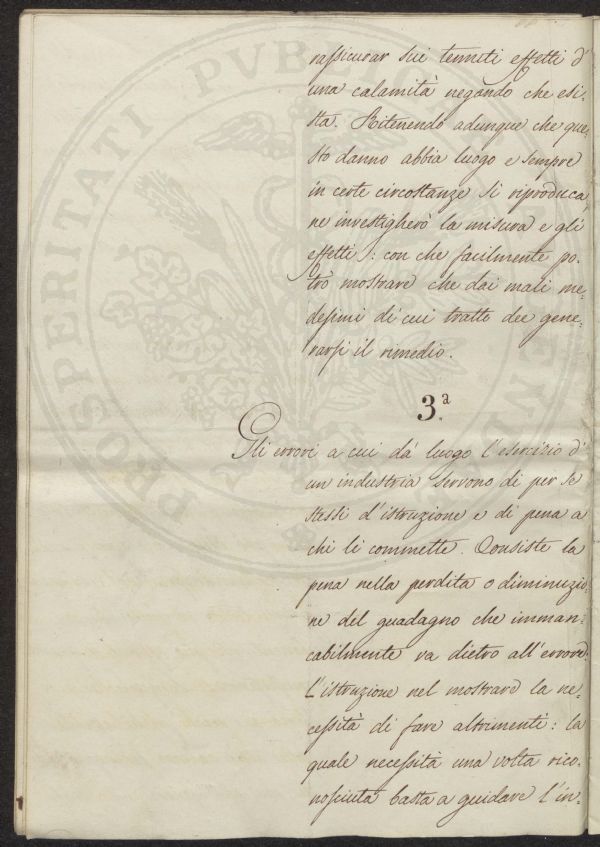 rassicurar sui temuti effetti d'
una calamità negando che esi-
sta. Ritenendo adunque che que-
sto danno abbia luogo e sempre
in certe circostanze si riproduca,
ne investigherò la misura e gli
effetti: con che facilmente po-
trò mostrare che dai mali me-
desimi di cui tratto dee gene-
rarsi il rimedio.
3.ª
Gli errori a cui dà luogo l'esercizio d'
un industria servono di per se
stessi d'istruzione e di pena a
chi li commette. Consiste la
pena nella perdita o diminuzio-
ne del guadagno che imman-
cabilmente va dietro all'errore:
L'istruzione nel mostrare la ne-
cessità di fare altrimenti: la
quale necessità una volta rico-
nosciuta basta a guidare l'in-
PROSPERITATI PVBLICAE